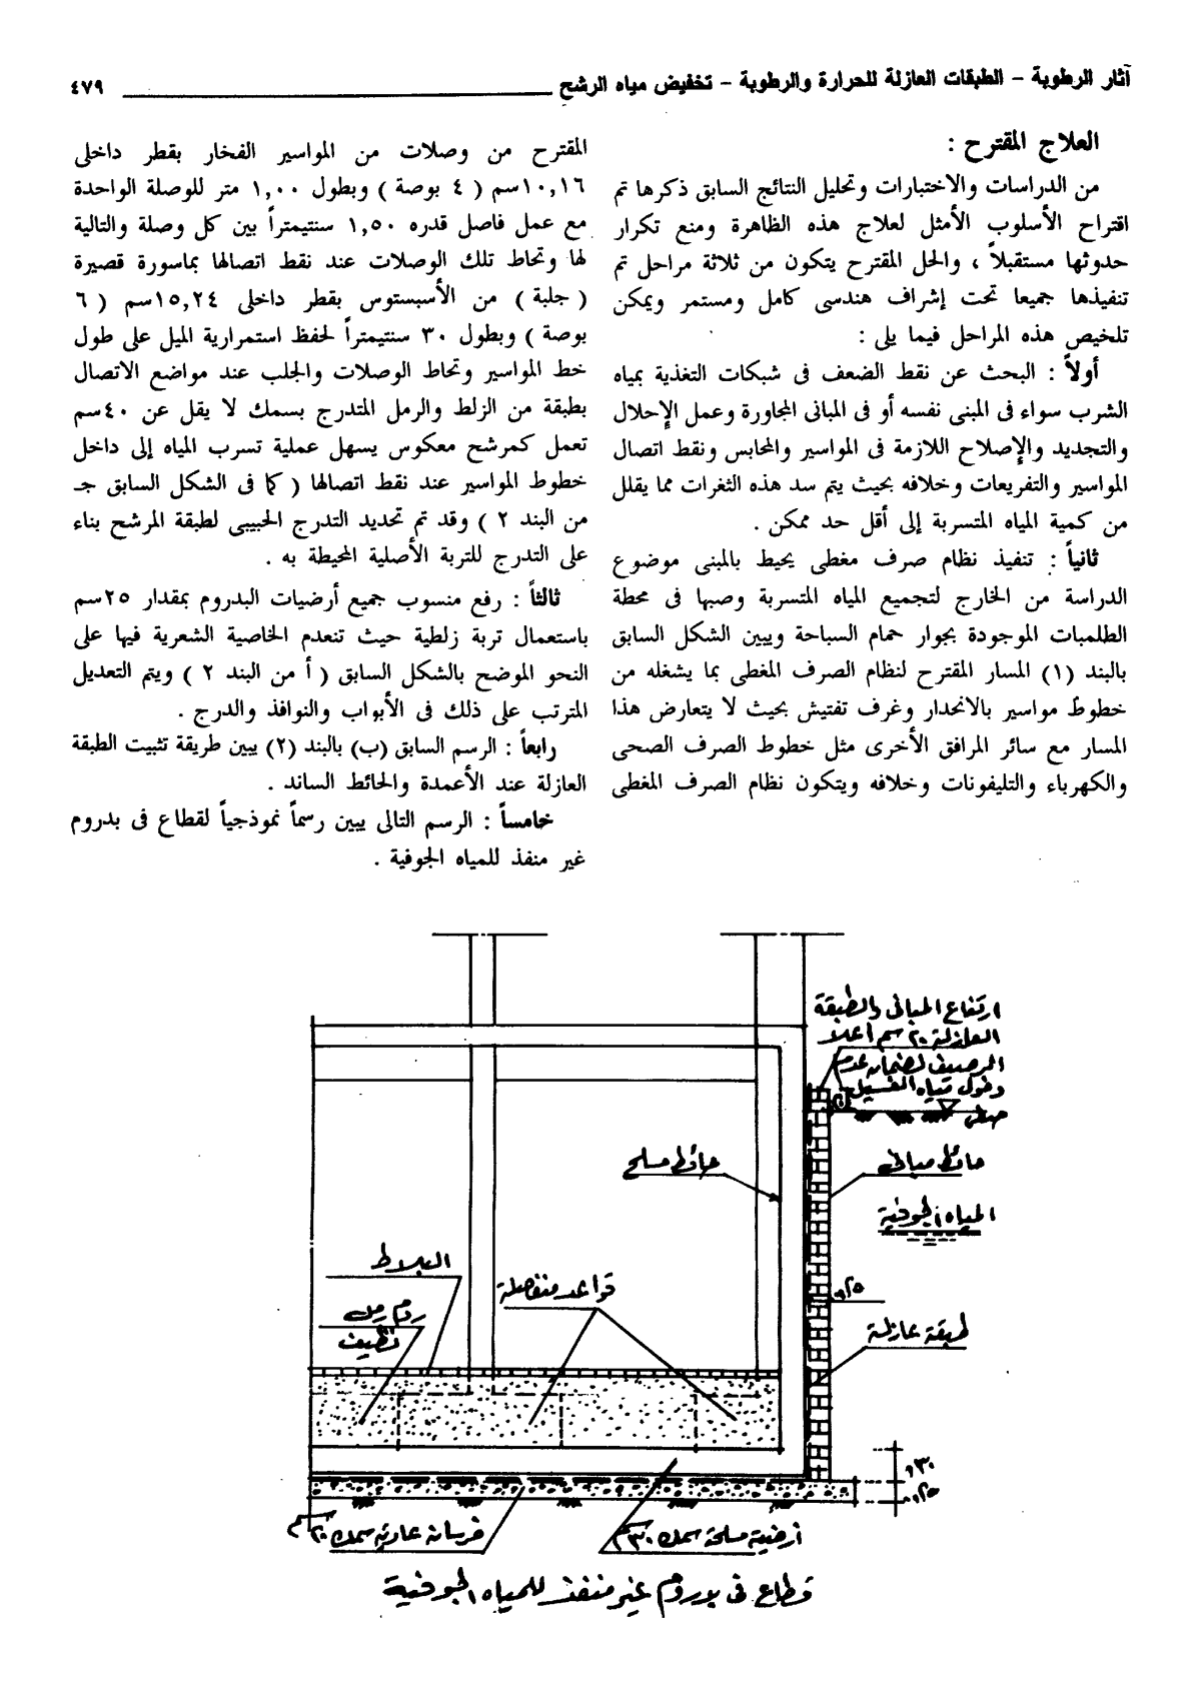 آثار الرطوبة – الطبقات العازلة للحرارة والرطوبة – تخفيض مياه الرشح ٤٧٩
العلاج المقترح :
من الدراسات والاختبارات وتحليل النتائج السابق ذكرها تم
اقتراح الأسلوب الأمثل لعلاج هذه الظاهرة ومنع تكرار
حدوثها مستقبلاً ، والحل المقترح يتكون من ثلاثة مراحل تم
تنفيذها جميعا تحت إشراف هندسى كامل ومستمر ويمكن
تلخيص هذه المراحل فيما يلى :
أولاً : البحث عن نقط الضعف فى شبكات التغذية بمياه
الشرب سواء فى المبنى نفسه أو فى المبانى المجاورة وعمل الإحلال
والتجديد والإصلاح اللازمة فى المواسير والمحابس ونقط اتصال
المواسير والتفريعات وخلافه بحيث يتم سد هذه الثغرات مما يقلل
من كمية المياه المتسربة إلى أقل حد ممكن .
ثانياً : تنفيذ نظام صرف مغطى يحيط بالمبنى موضوع
الدراسة من الخارج لتجميع المياه المتسربة وصبها فى محطة
الطلمبات الموجودة بجوار حمام السباحة ويبين الشكل السابق
بالبند (١) المسار المقترح لنظام الصرف المغطى بما يشغله من
خطوط مواسير بالانحدار وغرف تفتيش بحيث لا يتعارض هذا
المسار مع سائر المرافق الأخرى مثل خطوط الصرف الصحى
والكهرباء والتليفونات وخلافه ويتكون نظام الصرف المغطى
المقترح من وصلات من المواسير الفخار بقطر داخلى
١٠,١٦سم ( ٤ بوصة ) وبطول ١,٠٠ متر للوصلة الواحدة
مع عمل فاصل قدره ١,٥٠ سنتيمتراً بين كل وصلة والتالية
لها وتحاط تلك الوصلات عند نقط اتصالها بماسورة قصيرة
( جلبة ) من الأسبستوس بقطر داخلى ١٥,٢٤سم ( ٦
بوصة ) وبطول ٣٠ سنتيمتراً لحفظ استمرارية الميل على طول
خط المواسير وتحاط الوصلات والجلب عند مواضع الاتصال
بطبقة من الزلط والرمل المتدرج بسمك لا يقل عن ٤٠سم
تعمل كمرشح معكوس يسهل عملية تسرب المياه إلى داخل
خطوط المواسير عند نقط اتصالها ( كما فى الشكل السابق جـ
من البند ٢ ) وقد تم تحديد التدرج الحبيبى لطبقة المرشح بناء
على التدرج للتربة الأصلية المحيطة به .
ثالثاً : رفع منسوب جميع أرضيات البدروم بمقدار ٢٥سم
باستعمال تربة زلطية حيث تنعدم الخاصية الشعرية فيها على
النحو الموضح بالشكل السابق ( أ من البند ٢ ) ويتم التعديل
المترتب على ذلك فى الأبواب والنوافذ والدرج .
رابعاً : الرسم السابق (ب) بالبند (٢) يبين طريقة تثبيت الطبقة
العازلة عند الأعمدة والحائط الساند .
خامساً : الرسم التالى يبين رسماً نموذجياً لقطاع فى بدروم
غير منفذ للمياه الجوفية .
ارتفاع المبانى والطبقة
العازلة ٢٠ سم أعلا
الرصيف لضمان عدم
دخول مياه الغسيل
صفر
حائط مسلح
حائط مبانى
المياه الجوفية
البلاط
قواعد منفصلة
ردم رمل
نظيف
طبقة عازلة
خرسانة عادية سمك ٢٠سم
أرضية مسلحة سمك ٣٠سم
قطاع فى بدروم غير منفذ للمياه الجوفية